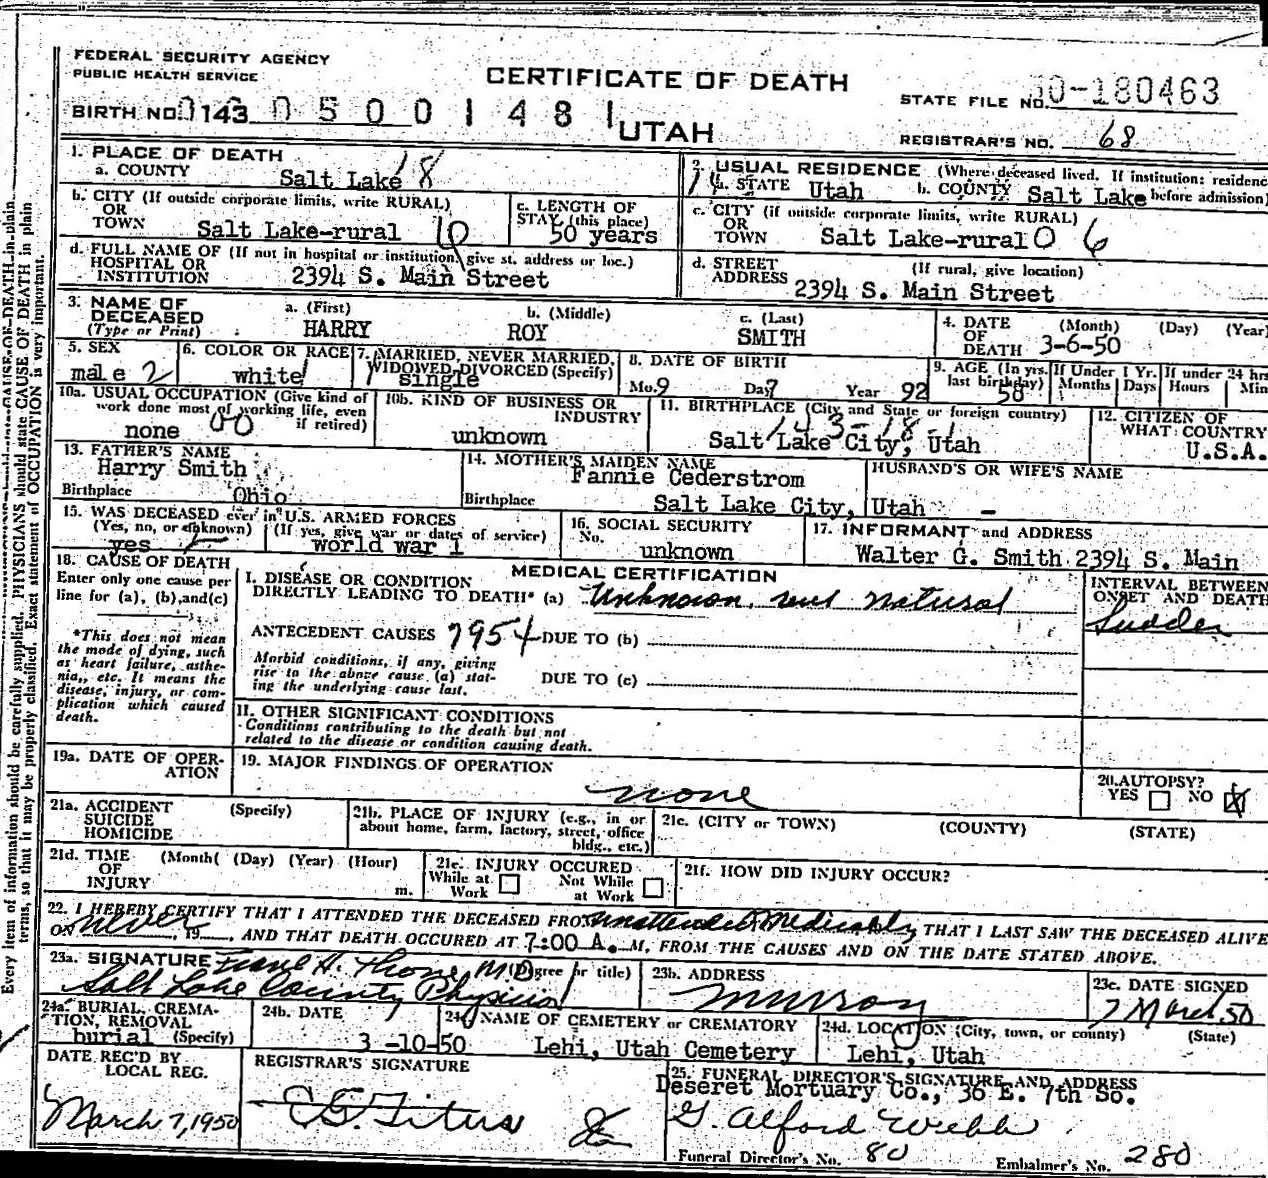 FEDERAL SECURITY AGENCY
PUBLIC HEALTH SERVICE
CERTIFICATE OF DEATH
STATE FILE NO. 50-180463
BIRTH NO. 143 05001481
UTAH
REGISTRAR'S NO. 68
1. PLACE OF DEATH
a. COUNTY Salt Lake 18
2. USUAL RESIDENCE (Where deceased lived. If institution: residence
a. STATE Utah b. COUNTY Salt Lake before admission)
b. CITY (If outside corporate limits, write RURAL)
OR
TOWN Salt Lake-rural
c. LENGTH OF
STAY (this place)
50 years
c. CITY (if outside corporate limits, write RURAL)
OR
TOWN Salt Lake-rural 0 6
d. FULL NAME OF (If not in hospital or institution, give st. address or loc.)
HOSPITAL OR
INSTITUTION 2394 S. Main Street
d. STREET (If rural, give location)
ADDRESS 2394 S. Main Street
3. NAME OF
DECEASED
(Type or Print)
a. (First)
HARRY
b. (Middle)
ROY
c. (Last)
SMITH
4. DATE (Month) (Day) (Year)
OF
DEATH 3-6-50
5. SEX
male 2
6. COLOR OR RACE
white
7. MARRIED, NEVER MARRIED,
WIDOWED, DIVORCED (Specify)
single
8. DATE OF BIRTH
Mo. 9 Day 7 Year 92
9. AGE (In yrs.
last birthday)
58
If Under 1 Yr.
Months Days
If under 24 hrs
Hours Min
10a. USUAL OCCUPATION (Give kind of
work done most of working life, even
if retired)
none 00
10b. KIND OF BUSINESS OR
INDUSTRY
unknown
11. BIRTHPLACE (City and State or foreign country)
Salt Lake City, Utah
12. CITIZEN OF
WHAT COUNTRY
U.S.A.
13. FATHER'S NAME
Harry Smith
Birthplace Ohio
14. MOTHER'S MAIDEN NAME
Fannie Cederstrom
Birthplace Salt Lake City, Utah
HUSBAND'S OR WIFE'S NAME
-
15. WAS DECEASED ever in U.S. ARMED FORCES
(Yes, no, or unknown) (If yes, give war or dates of service)
yes World War I
16. SOCIAL SECURITY
No.
unknown
17. INFORMANT and ADDRESS
Walter G. Smith 2394 S. Main
18. CAUSE OF DEATH
Enter only one cause per
line for (a), (b), and (c)
*This does not mean
the mode of dying, such
as heart failure, asthe-
nia, etc. It means the
disease, injury, or com-
plication which caused
death.
MEDICAL CERTIFICATION
I. DISEASE OR CONDITION
DIRECTLY LEADING TO DEATH* (a) Unknown, natural
INTERVAL BETWEEN
ONSET AND DEATH
Sudden
ANTECEDENT CAUSES 795 DUE TO (b)
Morbid conditions, if any, giving
rise to the above cause (a) stat-
ing the underlying cause last.
DUE TO (c)
II. OTHER SIGNIFICANT CONDITIONS
Conditions contributing to the death but not
related to the disease or condition causing death.
19a. DATE OF OPER-
ATION
19. MAJOR FINDINGS OF OPERATION
none
20. AUTOPSY?
YES NO X
21a. ACCIDENT (Specify)
SUICIDE
HOMICIDE
21b. PLACE OF INJURY (e.g., in or
about home, farm, factory, street, office
bldg., etc.)
21c. (CITY or TOWN) (COUNTY) (STATE)
21d. TIME (Month( (Day) (Year) (Hour)
OF
INJURY m.
21e. INJURY OCCURED
While at Work Not While at Work
21f. HOW DID INJURY OCCUR?
22. I HEREBY CERTIFY THAT I ATTENDED THE DECEASED FROM unattended Medically THAT I LAST SAW THE DECEASED ALIVE
ON never, 19__, AND THAT DEATH OCCURED AT 7:00 A. M, FROM THE CAUSES AND ON THE DATE STATED ABOVE.
23a. SIGNATURE M.D. (Degree or title)
Salt Lake County Physician
23b. ADDRESS
Murray
23c. DATE SIGNED
7 March 50
24a. BURIAL, CREMA-
TION, REMOVAL
burial (Specify)
24b. DATE
3-10-50
24c. NAME OF CEMETERY or CREMATORY
Lehi, Utah Cemetery
24d. LOCATION (City, town, or county) (State)
Lehi, Utah
DATE REC'D BY
LOCAL REG.
March 7, 1950
REGISTRAR'S SIGNATURE
25. FUNERAL DIRECTOR'S SIGNATURE AND ADDRESS
Deseret Mortuary Co., 36 E. 7th So.
G. Alford Webb
Funeral Director's No. 80 Embalmer's No. 280
Every item of information should be carefully supplied. PHYSICIANS should state CAUSE OF DEATH in plain
terms, so that it may be properly classified. Exact statement of OCCUPATION is very important.